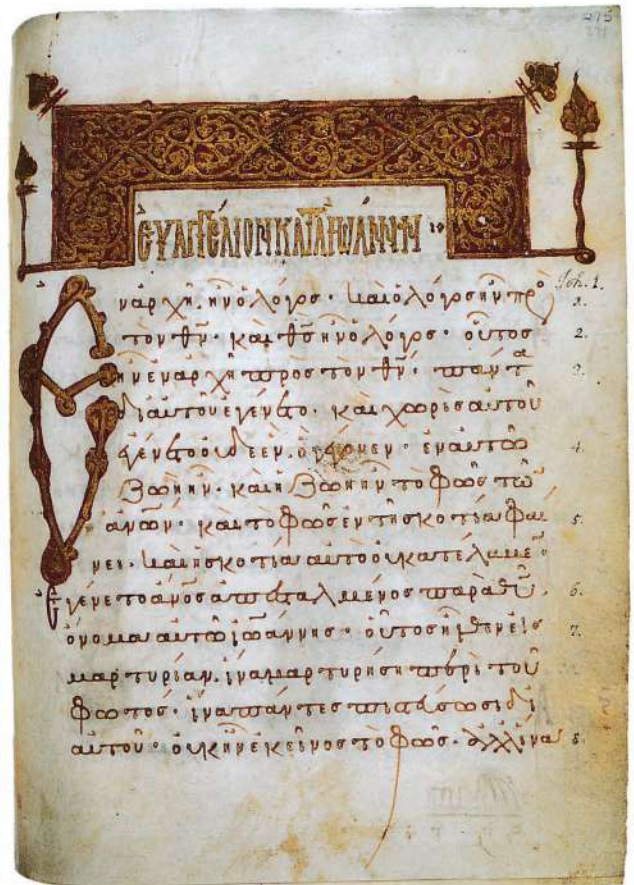 275
ΕΥΑΓΓΕΛΙΟΝ ΚΑΤΑ ΙΩΑΝΝΗΝ
Joh. 1.
ἐν ἀρχῇ ἦν ὁ λόγος · καὶ ὁ λόγος ἦν πρὸ 1.
τὸν θν · καὶ θς ἦν ὁ λόγος · οὗτος 2.
ἦν ἐν ἀρχῇ πρὸς τὸν θν · πάντα 3.
δι αυτοῦ ἐγένετο · καὶ χωρὶς αὐτοῦ
ἐγένετο οὐδὲ ἕν. ὃ γέγονεν · ἐν αὐτῶ 4.
ζωὴ ἦν · καὶ ἡ ζωὴ ἦν τὸ φῶς τῶ
ἀνῶν · καὶ τὸ φῶς ἐν τῇ σκοτία φαί 5.
νει · καὶ ἡ σκοτία αὐτὸ οὐ κατέλαβεν ·
Ἐγένετο ἀνος ἀπεσταλμένος παρὰ θυ, 6.
ὄνομα αὐτῶ ἰωάννης · οὗτος ἦλθεν εἰς 7.
μαρτυρίαν, ἵνα μαρτυρήση περὶ τοῦ
φωτός · ἵνα πάντες πιστεύσωσι δι
αὐτοῦ · οὐκ ἦν ἐκεῖνος τὸ φῶς · ἀλλ ἵνα 8.